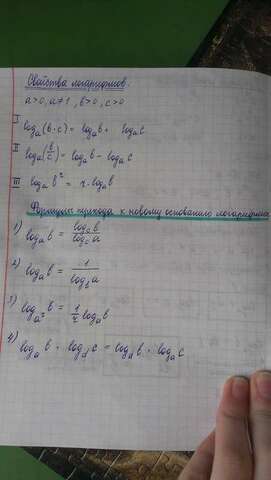 Свойства логарифмов.
a>0, a≠1, b>0, c>0
I logₐ(b·c) = logₐb + logₐc
II logₐ(b/c) = logₐb - logₐc
III logₐbʳ = r·logₐb
Формулы перехода к новому основанию логарифма
1) logₐb = log_c b / log_c a
2) logₐb = 1 / log_b a
3) log_{aʳ} b = 1/r logₐb
4) logₐb · log_d c = log_d b · logₐc